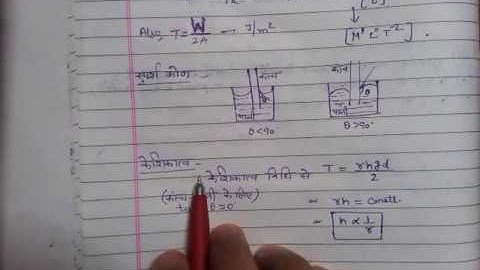 Also, T = W/2A → J/m²
[M¹ L⁰ T⁻²].
स्पर्श कोण -
काँच
काँच
θ
θ
पानी
θ<90°
θ>90°
केशिकात्व -
केशिकात्व विधि से T = rhgd/2
के लिए)
θ=0
∴ rh = Constt.
∴ h ∝ 1/r